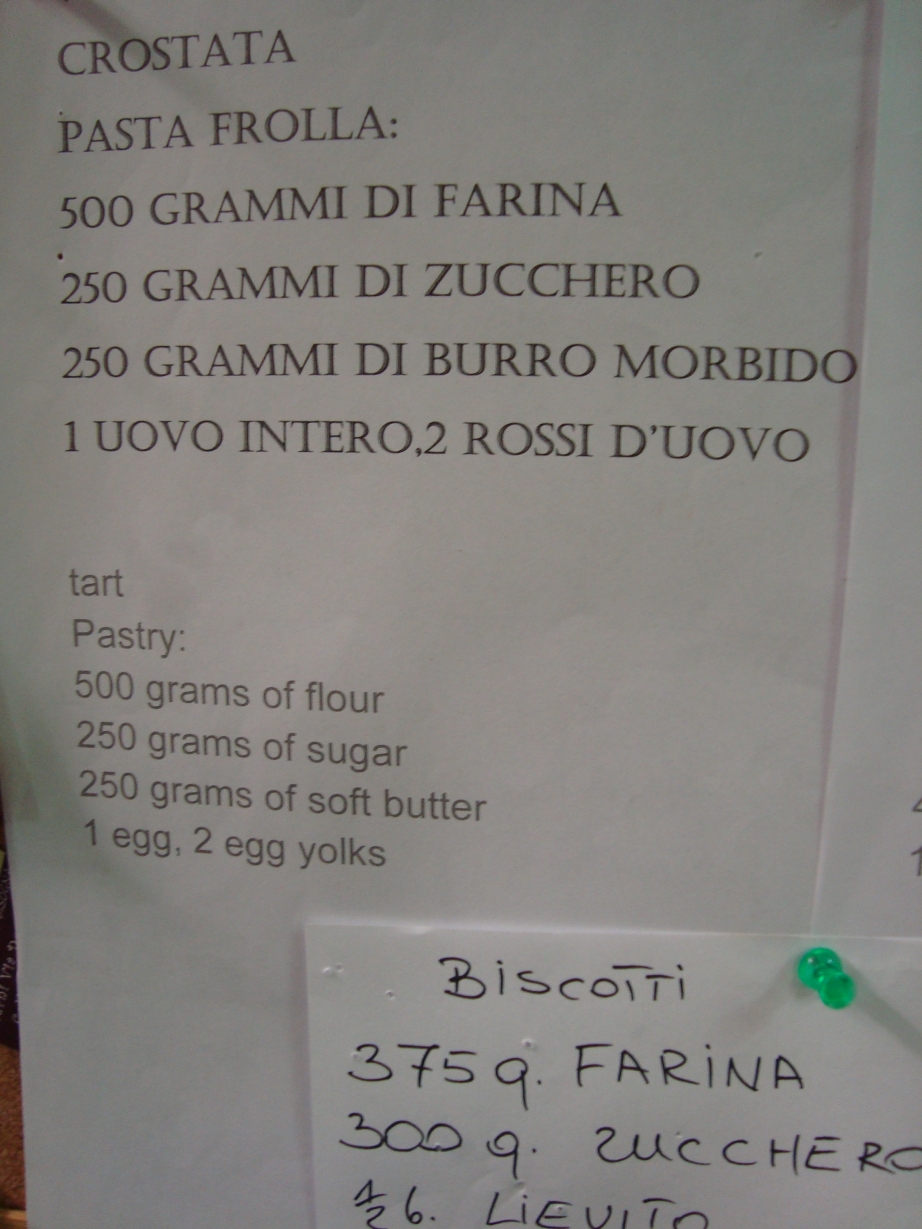 CROSTATA
PASTA FROLLA:
500 GRAMMI DI FARINA
250 GRAMMI DI ZUCCHERO
250 GRAMMI DI BURRO MORBIDO
1 UOVO INTERO,2 ROSSI D'UOVO
tart
Pastry:
500 grams of flour
250 grams of sugar
250 grams of soft butter
1 egg, 2 egg yolks
BiscoTTi
375 g. FARiNA
300 g. ZUCCHERO
1/2 b. LiEVITO